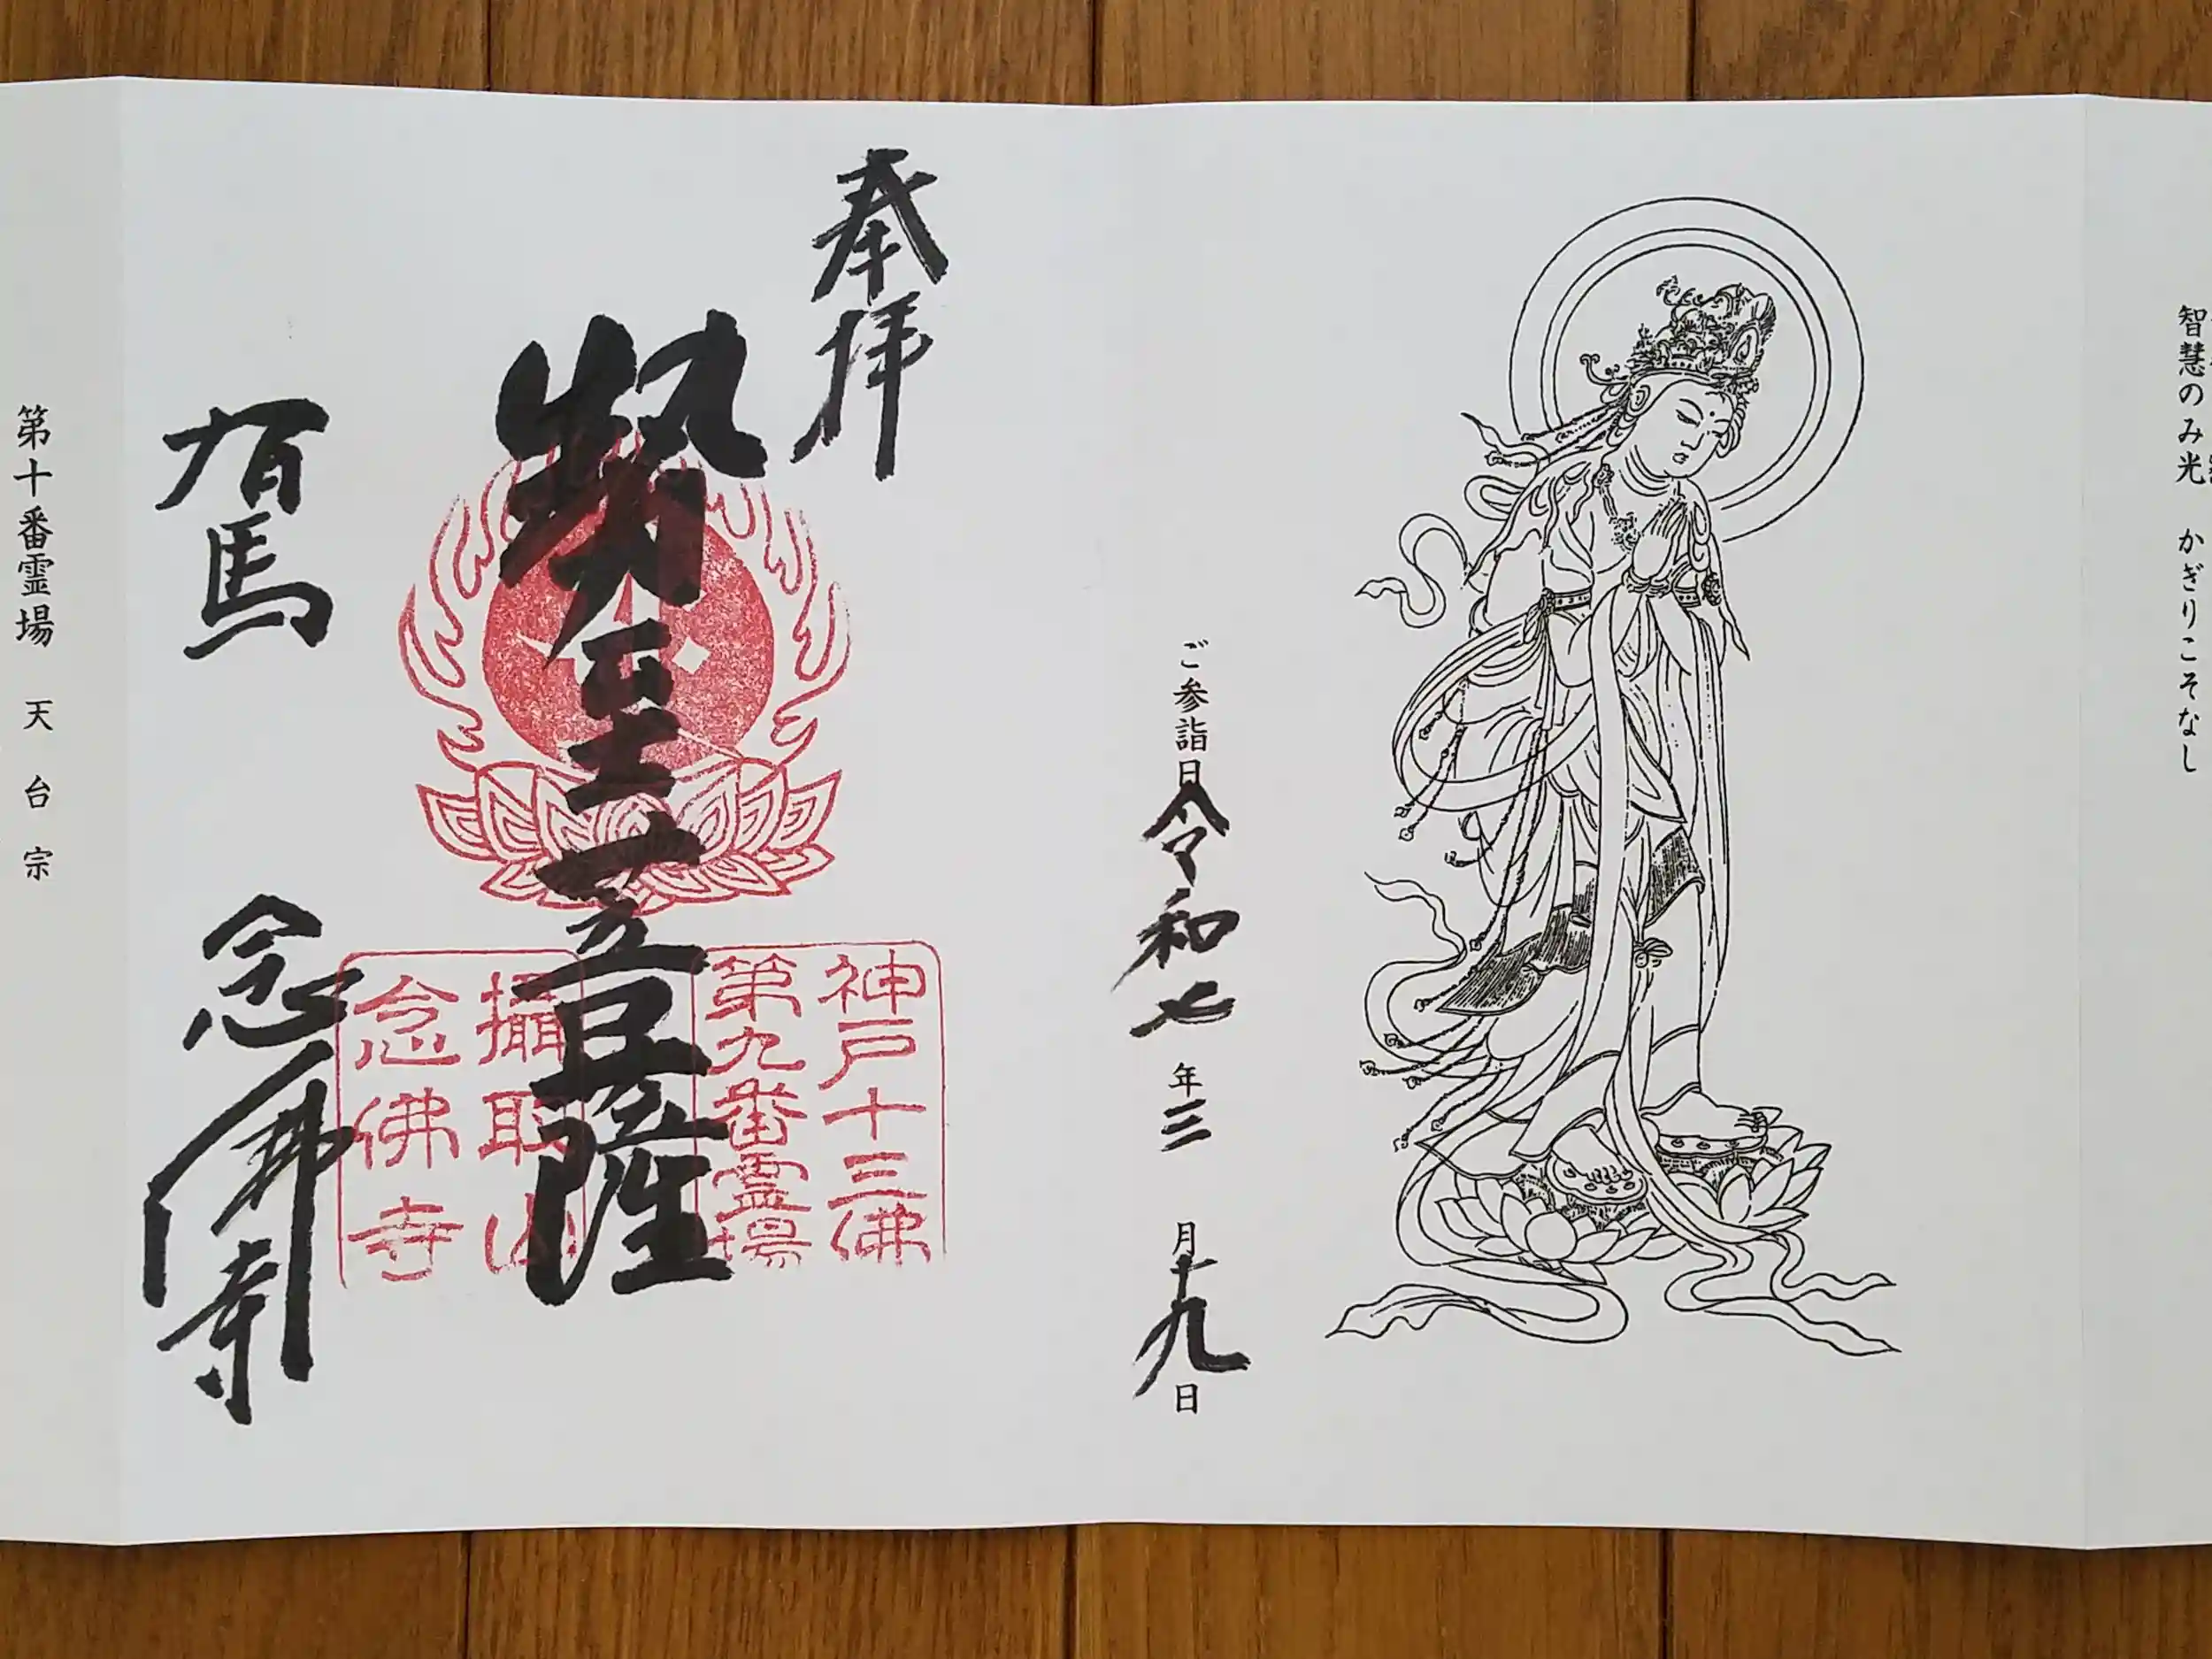 智慧のみ光　かぎりこそなし
ご参詣日令和七年三月十九日
奉拝
勢至菩薩
神戸十三佛
第九番霊場
攝取山
念佛寺
有馬　念佛寺
第十番霊場　天台宗